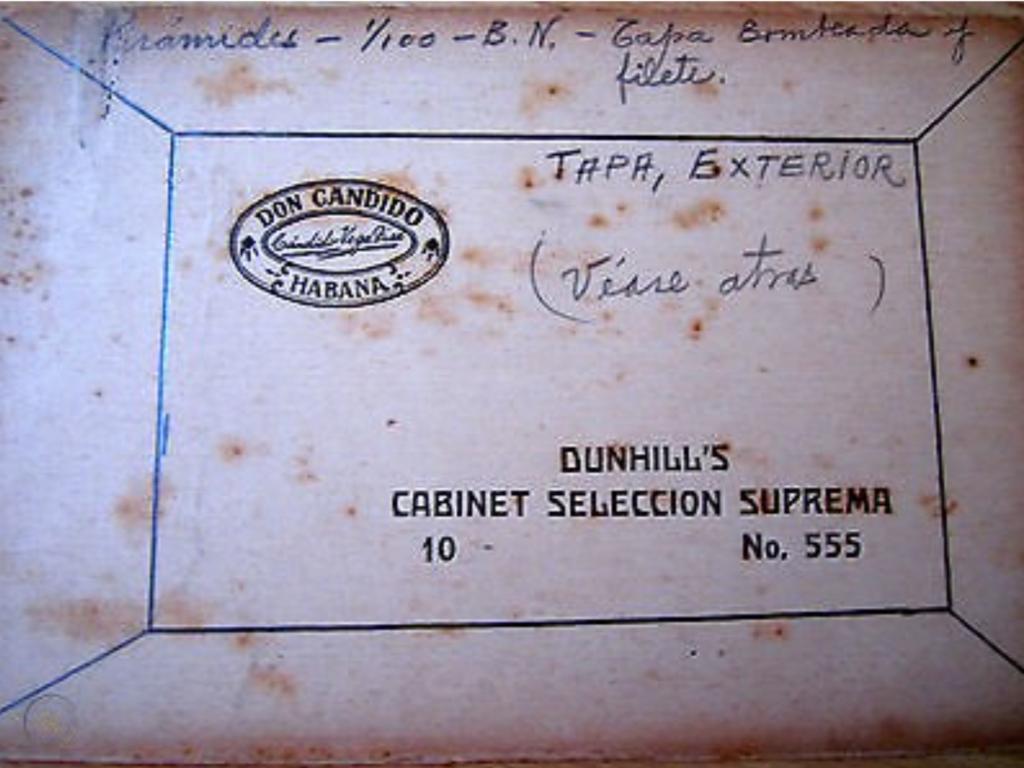 Pirámides - 1/100 - B.N. - Tapa Bombeada y
filete.
TAPA, EXTERIOR
DON CANDIDO
Cándido Vega Díaz
HABANA
(Véase atras)
DUNHILL'S
CABINET SELECCION SUPREMA
10 - No. 555